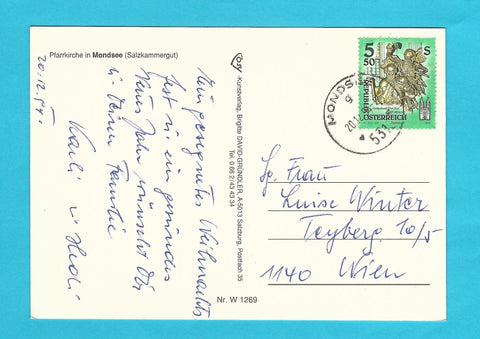 Pfarrkirche in Mondsee (Salzkammergut)
20.12.94.
Ein gesegnetes Weihnachts-
fest u. ein gesundes
Neues Jahr wünscht Dir
u. Deiner Familie
Karli u. Hedi
Cosy - Kunstverlag, Brigitte DAVID-GRÜNDLER, A-5013 Salzburg, Postfach 35
Tel. 0 66 2/43 43 34
Nr. W 1269
5 50 S
REPUBLIK
ÖSTERREICH
MONDSEE
9
20.12
531
Sg. Frau
Luise Winter
Teyberg. 10/5
1140 Wien